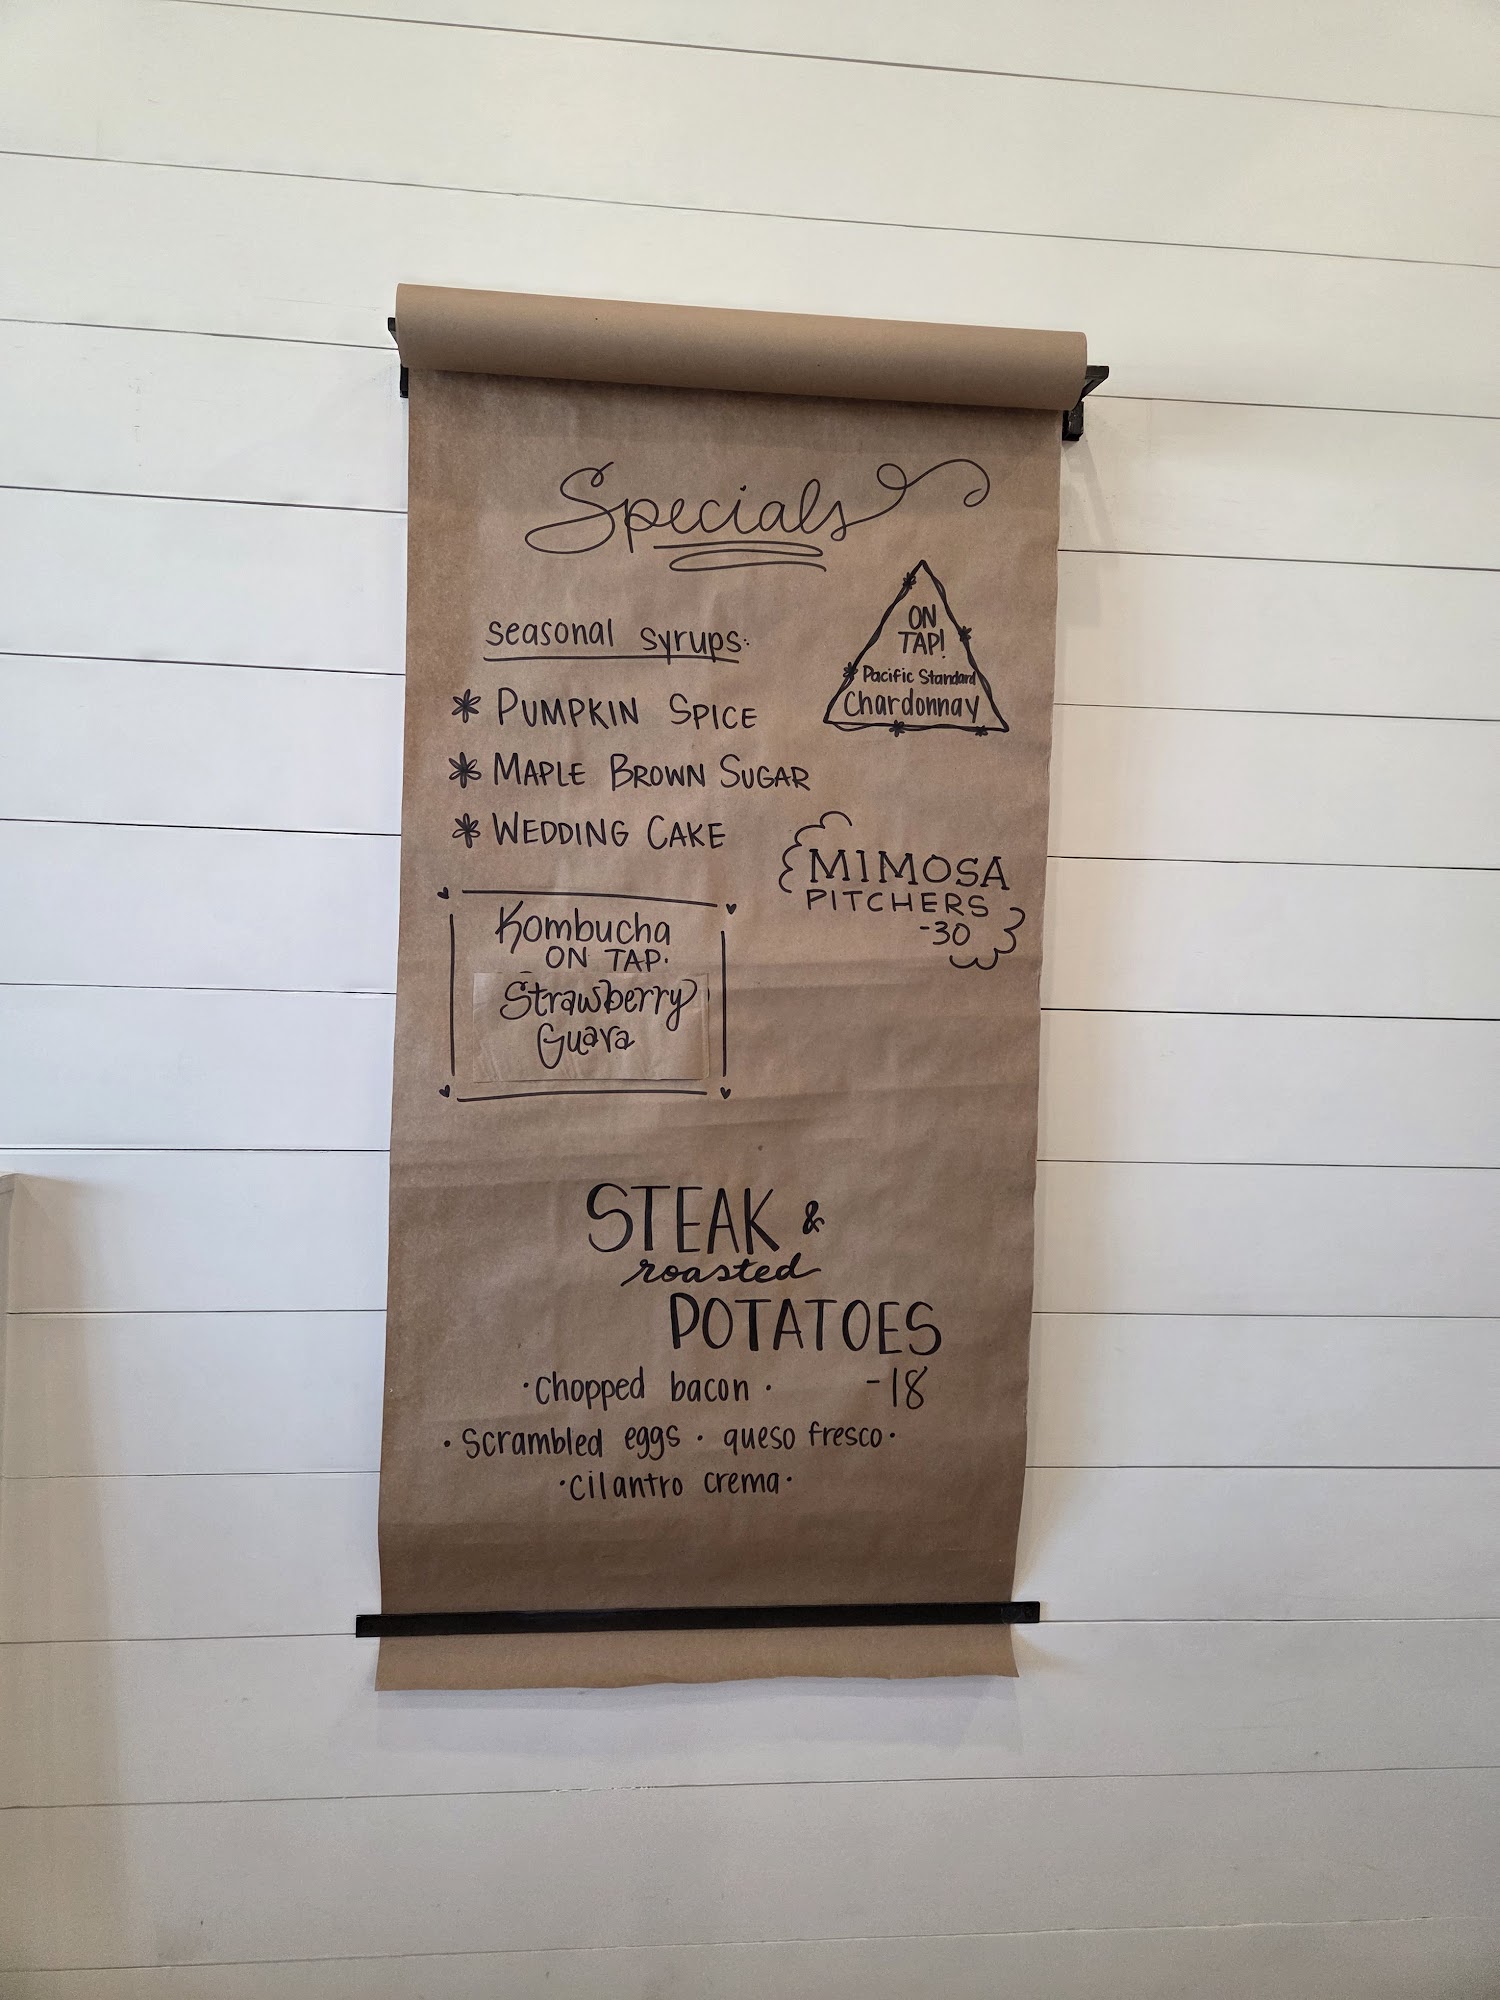 Specials
seasonal syrups:
* PUMPKIN SPICE
* MAPLE BROWN SUGAR
* WEDDING CAKE
ON
TAP!
Pacific Standard
Chardonnay
MIMOSA
PITCHERS
-30
Kombucha
ON TAP·
Strawberry
Guava
STEAK &
roasted
POTATOES
·chopped bacon· -18
·scrambled eggs· queso fresco·
·cilantro crema·